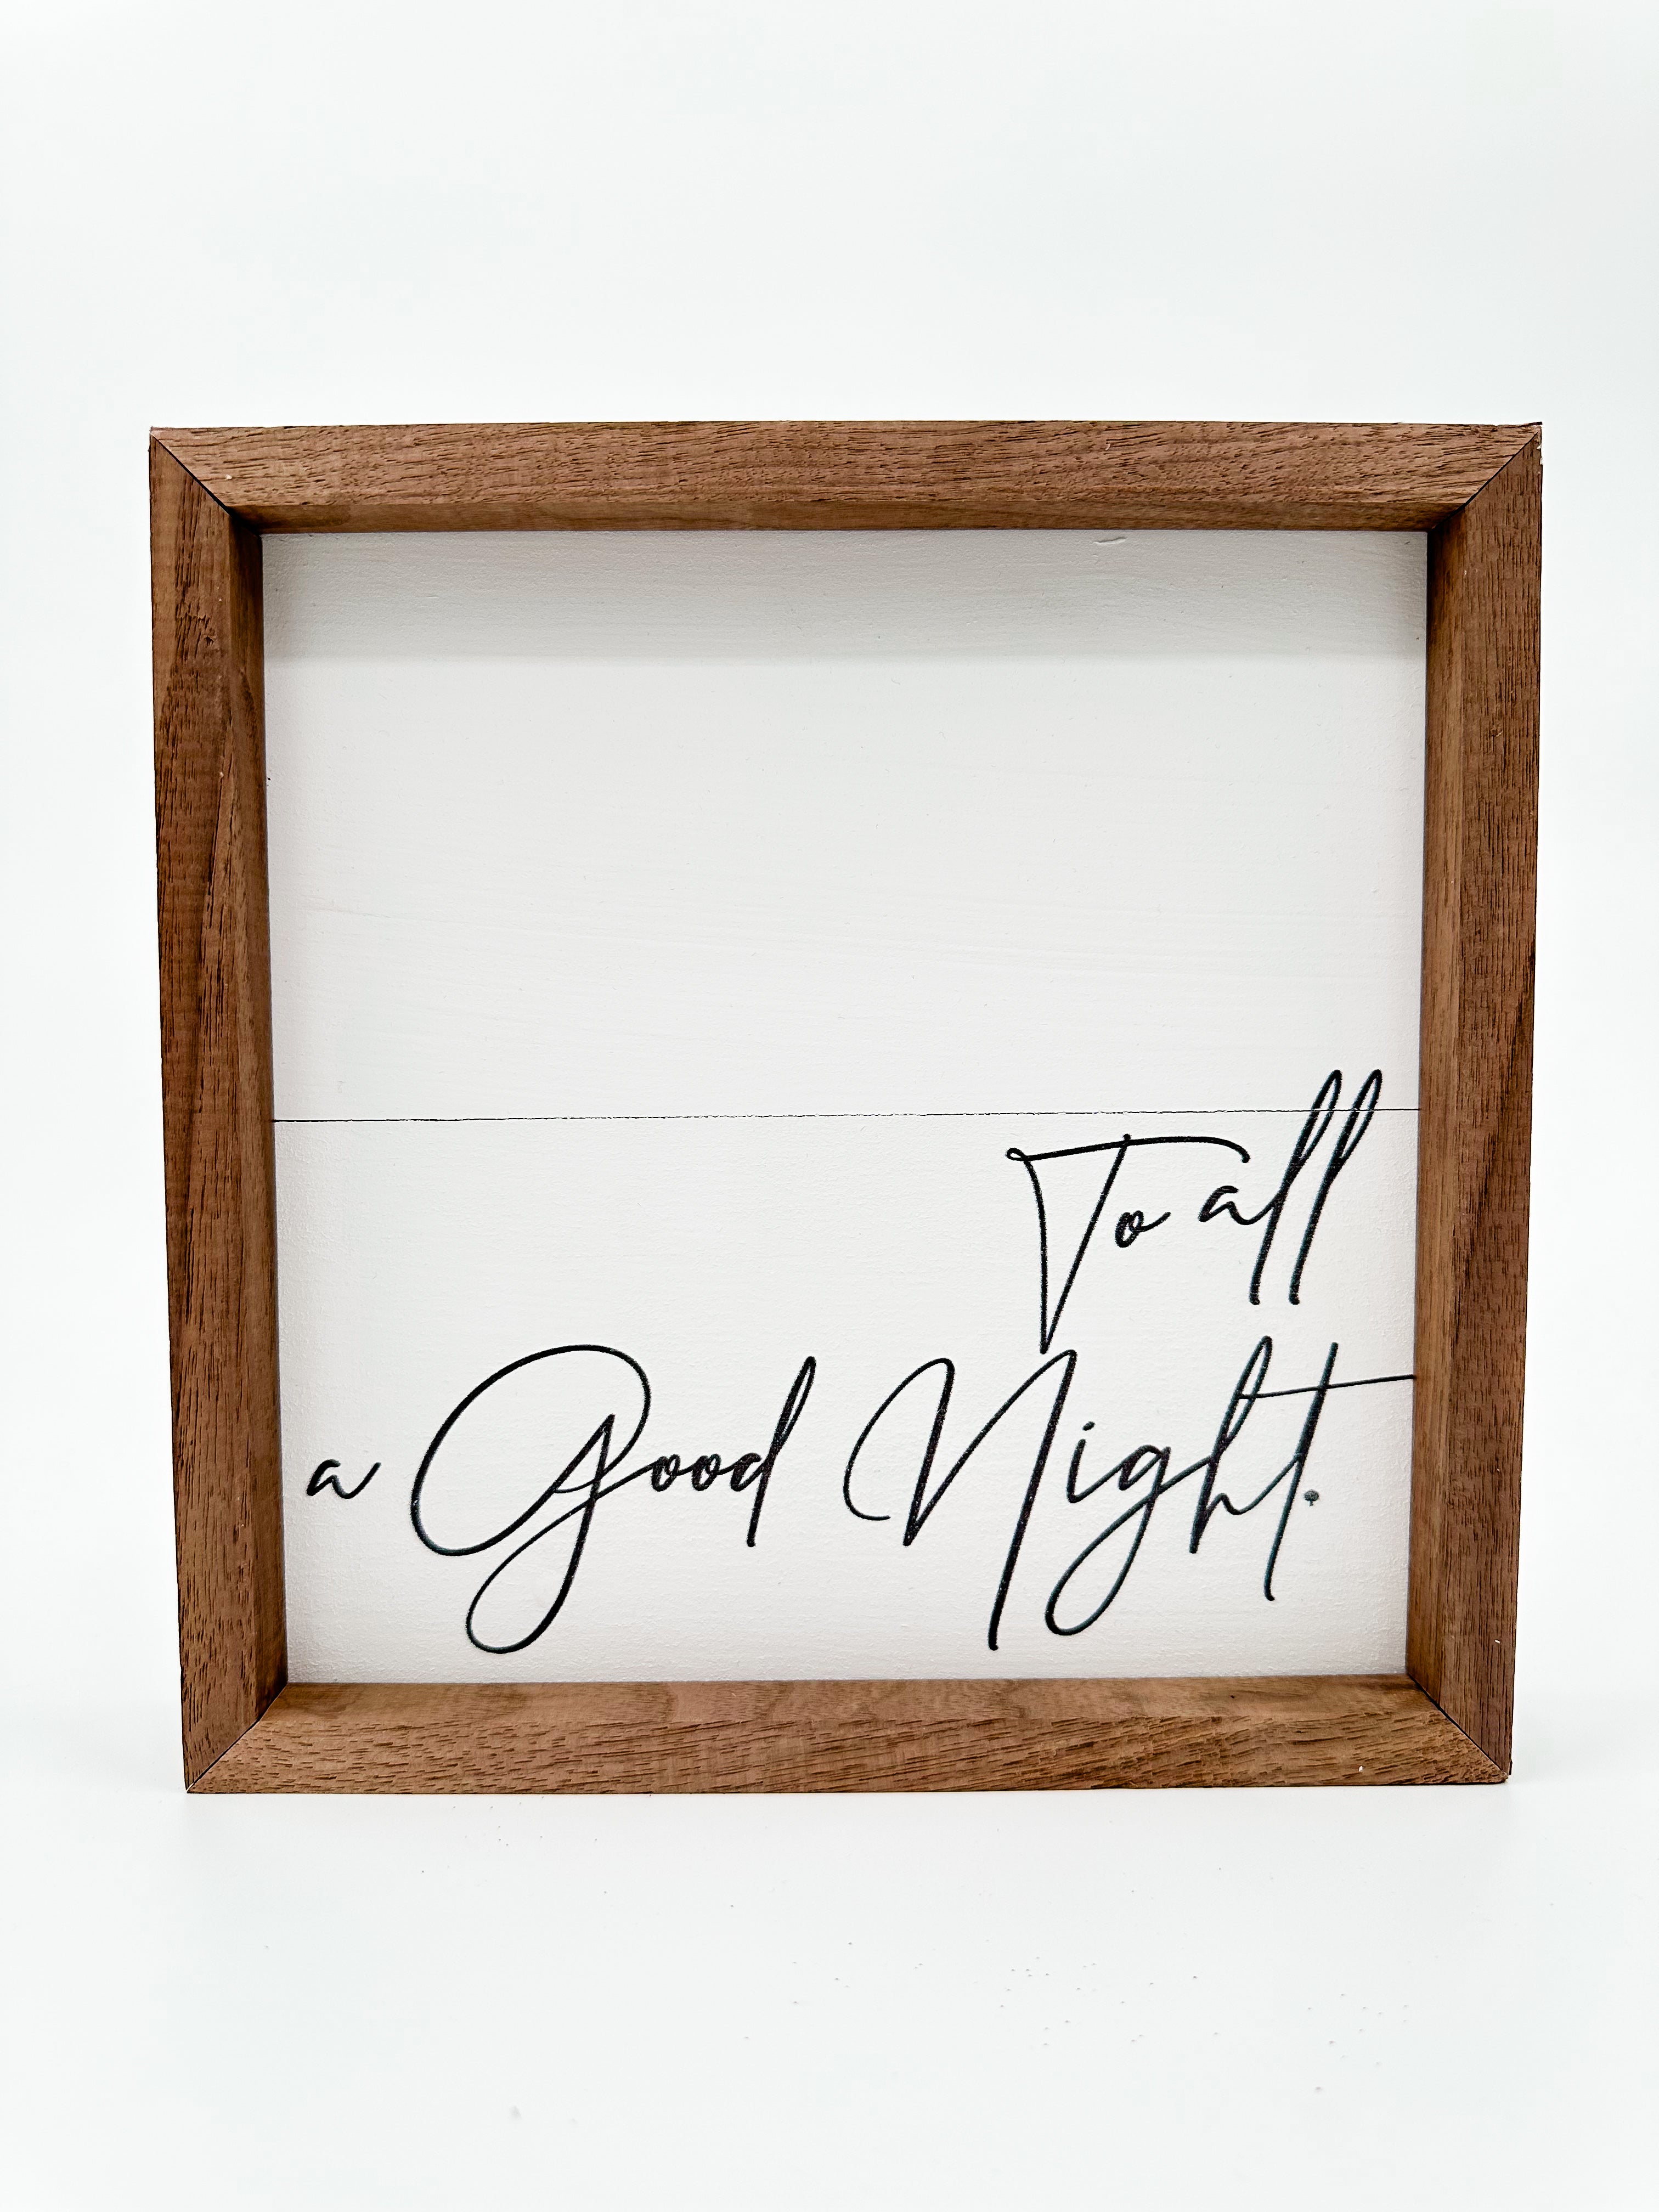 To all
a Good Night.